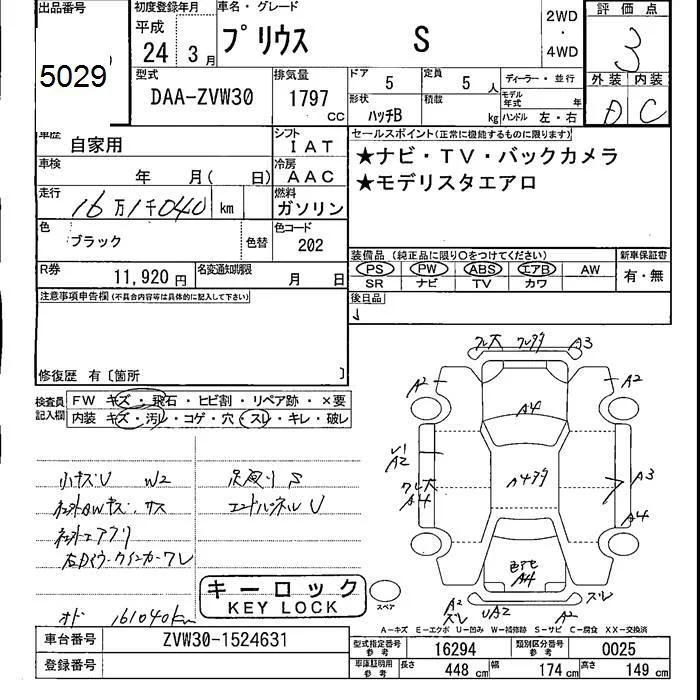 出品番号 初度登録年月 車名・グレード 2WD 評価点
平成 ・
24年 3月 プリウス S 4WD 3
5029 型式 排気量 ドア 5 定員 5人 ディーラー・並行 外装 内装
DAA-ZVW30 1797 CC 形状 ハッチB 積載 kg モデル年式 年 D C
ハンドル 左・右
車歴 自家用 シフト IAT セールスポイント(正常に機能するものに限ります)
車検 年 月( 日) 冷房 AAC ★ナビ・TV・バックカメラ
走行 16万1千040 km 燃料 ガソリン ★モデリスタエアロ
色 ブラック 色替 色コード 202
装備品 (純正品に限り○をつけてください) 新車保証書
R券 11,920円 名変通知期限 月 日 PS PW ABS エアB AW 有・無
SR ナビ TV カワ
注意事項申告欄(不具合内容等は具体的に記入して下さい) 後日品
修復歴 有〔箇所 〕
検査員記入欄 FW キズ・飛石・ヒビ割・リペア跡・×要
内装 キズ・汚レ・コゲ・穴・スレ・キレ・破レ
小キズU W2 S
U
オド 161040km
キーロック
KEY LOCK
A3
A2 A2
A4
A2
A3
A4 A4
A4
A2 UA2 A2
ズレ ズレ
スペア
A-キズ E-エクボ U-凹み W-補修跡 S-サビ C-腐食 XX-交換済
車台番号 ZVW30-1524631 型式指定番号 参考 16294 類別区分番号 参考 0025
登録番号 車庫証明用 参考 長さ 448 cm 幅 174 cm 高さ 149 cm